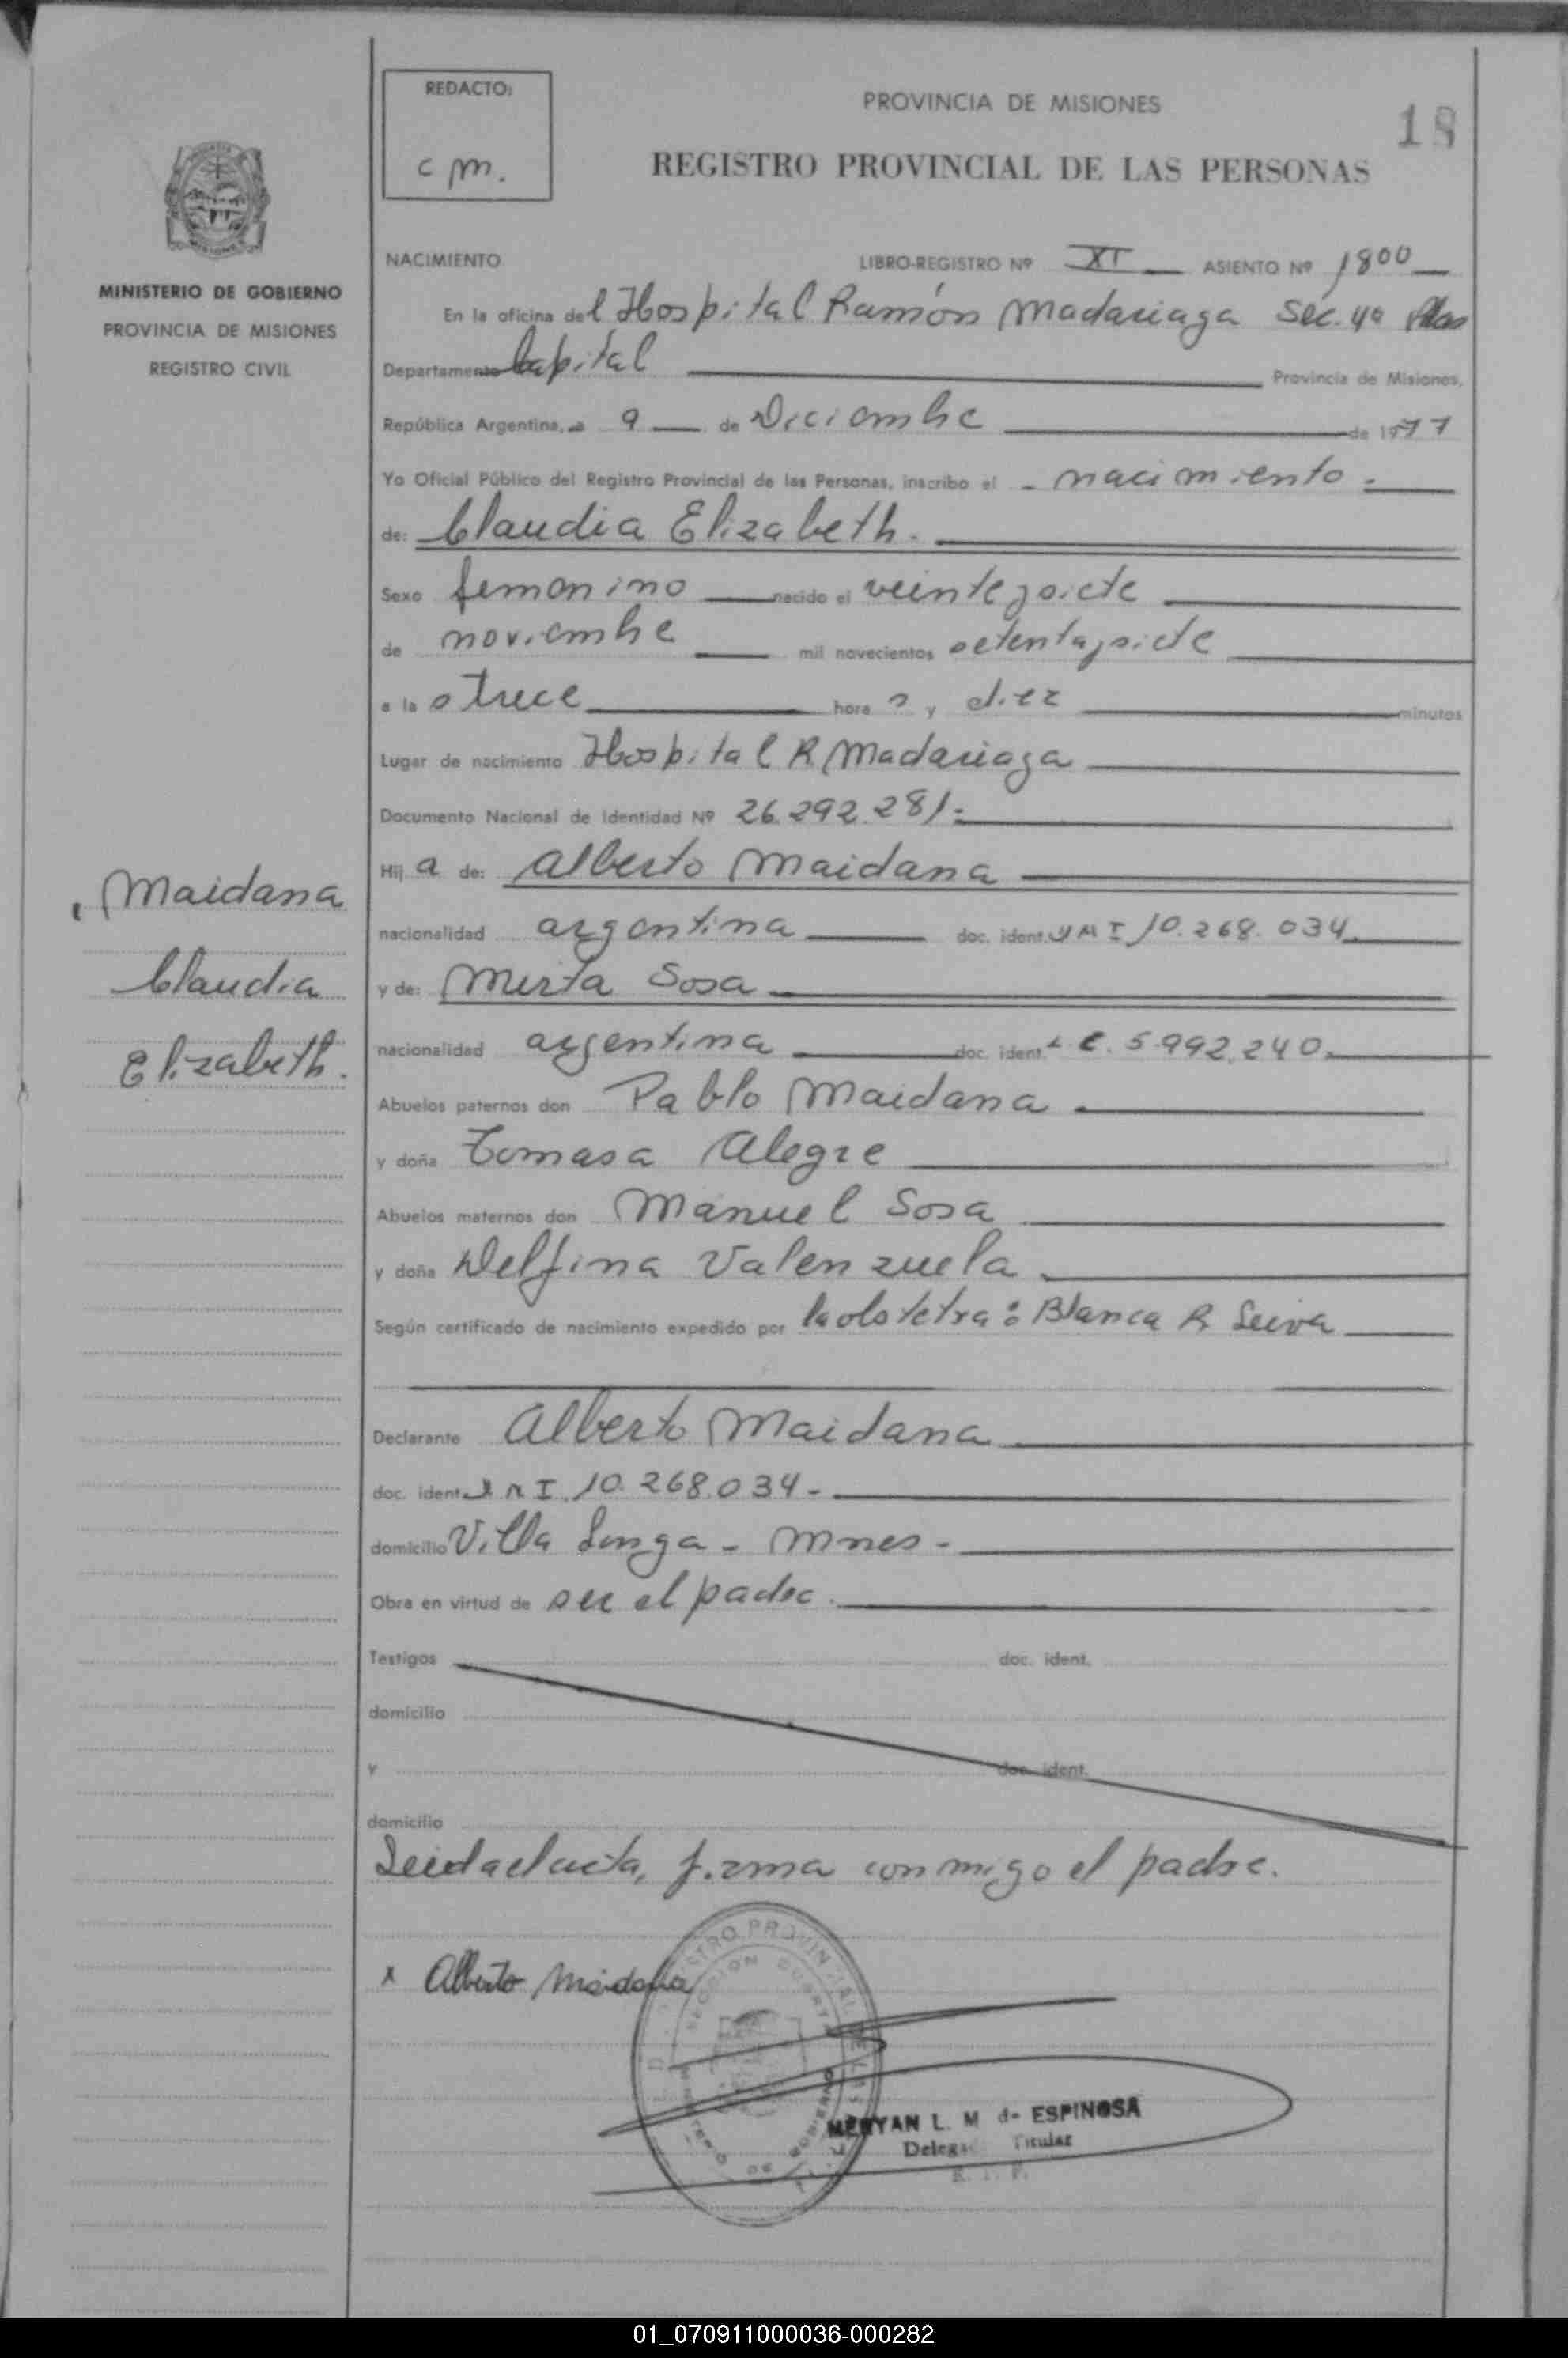 REDACTO:
c m.
PROVINCIA DE MISIONES
18
REGISTRO PROVINCIAL DE LAS PERSONAS
MINISTERIO DE GOBIERNO
PROVINCIA DE MISIONES
REGISTRO CIVIL
NACIMIENTO LIBRO-REGISTRO Nº XI ASIENTO Nº 1800
En la oficina del Hospital Ramón Madariaga Sec. 4ª Pdas
Departamento Capital Provincia de Misiones,
República Argentina, a 9 de Diciembre de 1977
Yo Oficial Público del Registro Provincial de las Personas, inscribo el - nacimiento -
de: Claudia Elizabeth.
Sexo femenino nacido el veintesiete
de noviembre mil novecientos setentaysiete
a la s trece hora s y diez minutos
Lugar de nacimiento Hospital R. Madariaga
Documento Nacional de Identidad Nº 26.292.281-
Hij a de: Alberto Maidana
nacionalidad argentina doc. ident. DNI 10.268.034.
y de: Mirta Sosa
nacionalidad argentina doc. ident. L C. 5.992.240.
Abuelos paternos don Pablo Maidana
y doña Tomasa Alegre
Abuelos maternos don Manuel Sosa
y doña Delfina Valenzuela
Según certificado de nacimiento expedido por la obstetra: Blanca R. Leiva
Declarante Alberto Maidana
doc. ident. DNI. 10.268.034-
domicilio Villa Longa - Mnes -
Obra en virtud de ser el padre.
Testigos doc. ident.
domicilio
y doc. ident.
domicilio
Leida el acta, firma conmigo el padre.
x Alberto Maidana
Maidana
Claudia
Elizabeth.
REGISTRO PROVINCIAL DE LAS
SECCION CUARTA
MINISTERIO DE GOBIERNO
L. M de ESPINOSA
Delegada Titular
R. P. P.
01_070911000036-000282